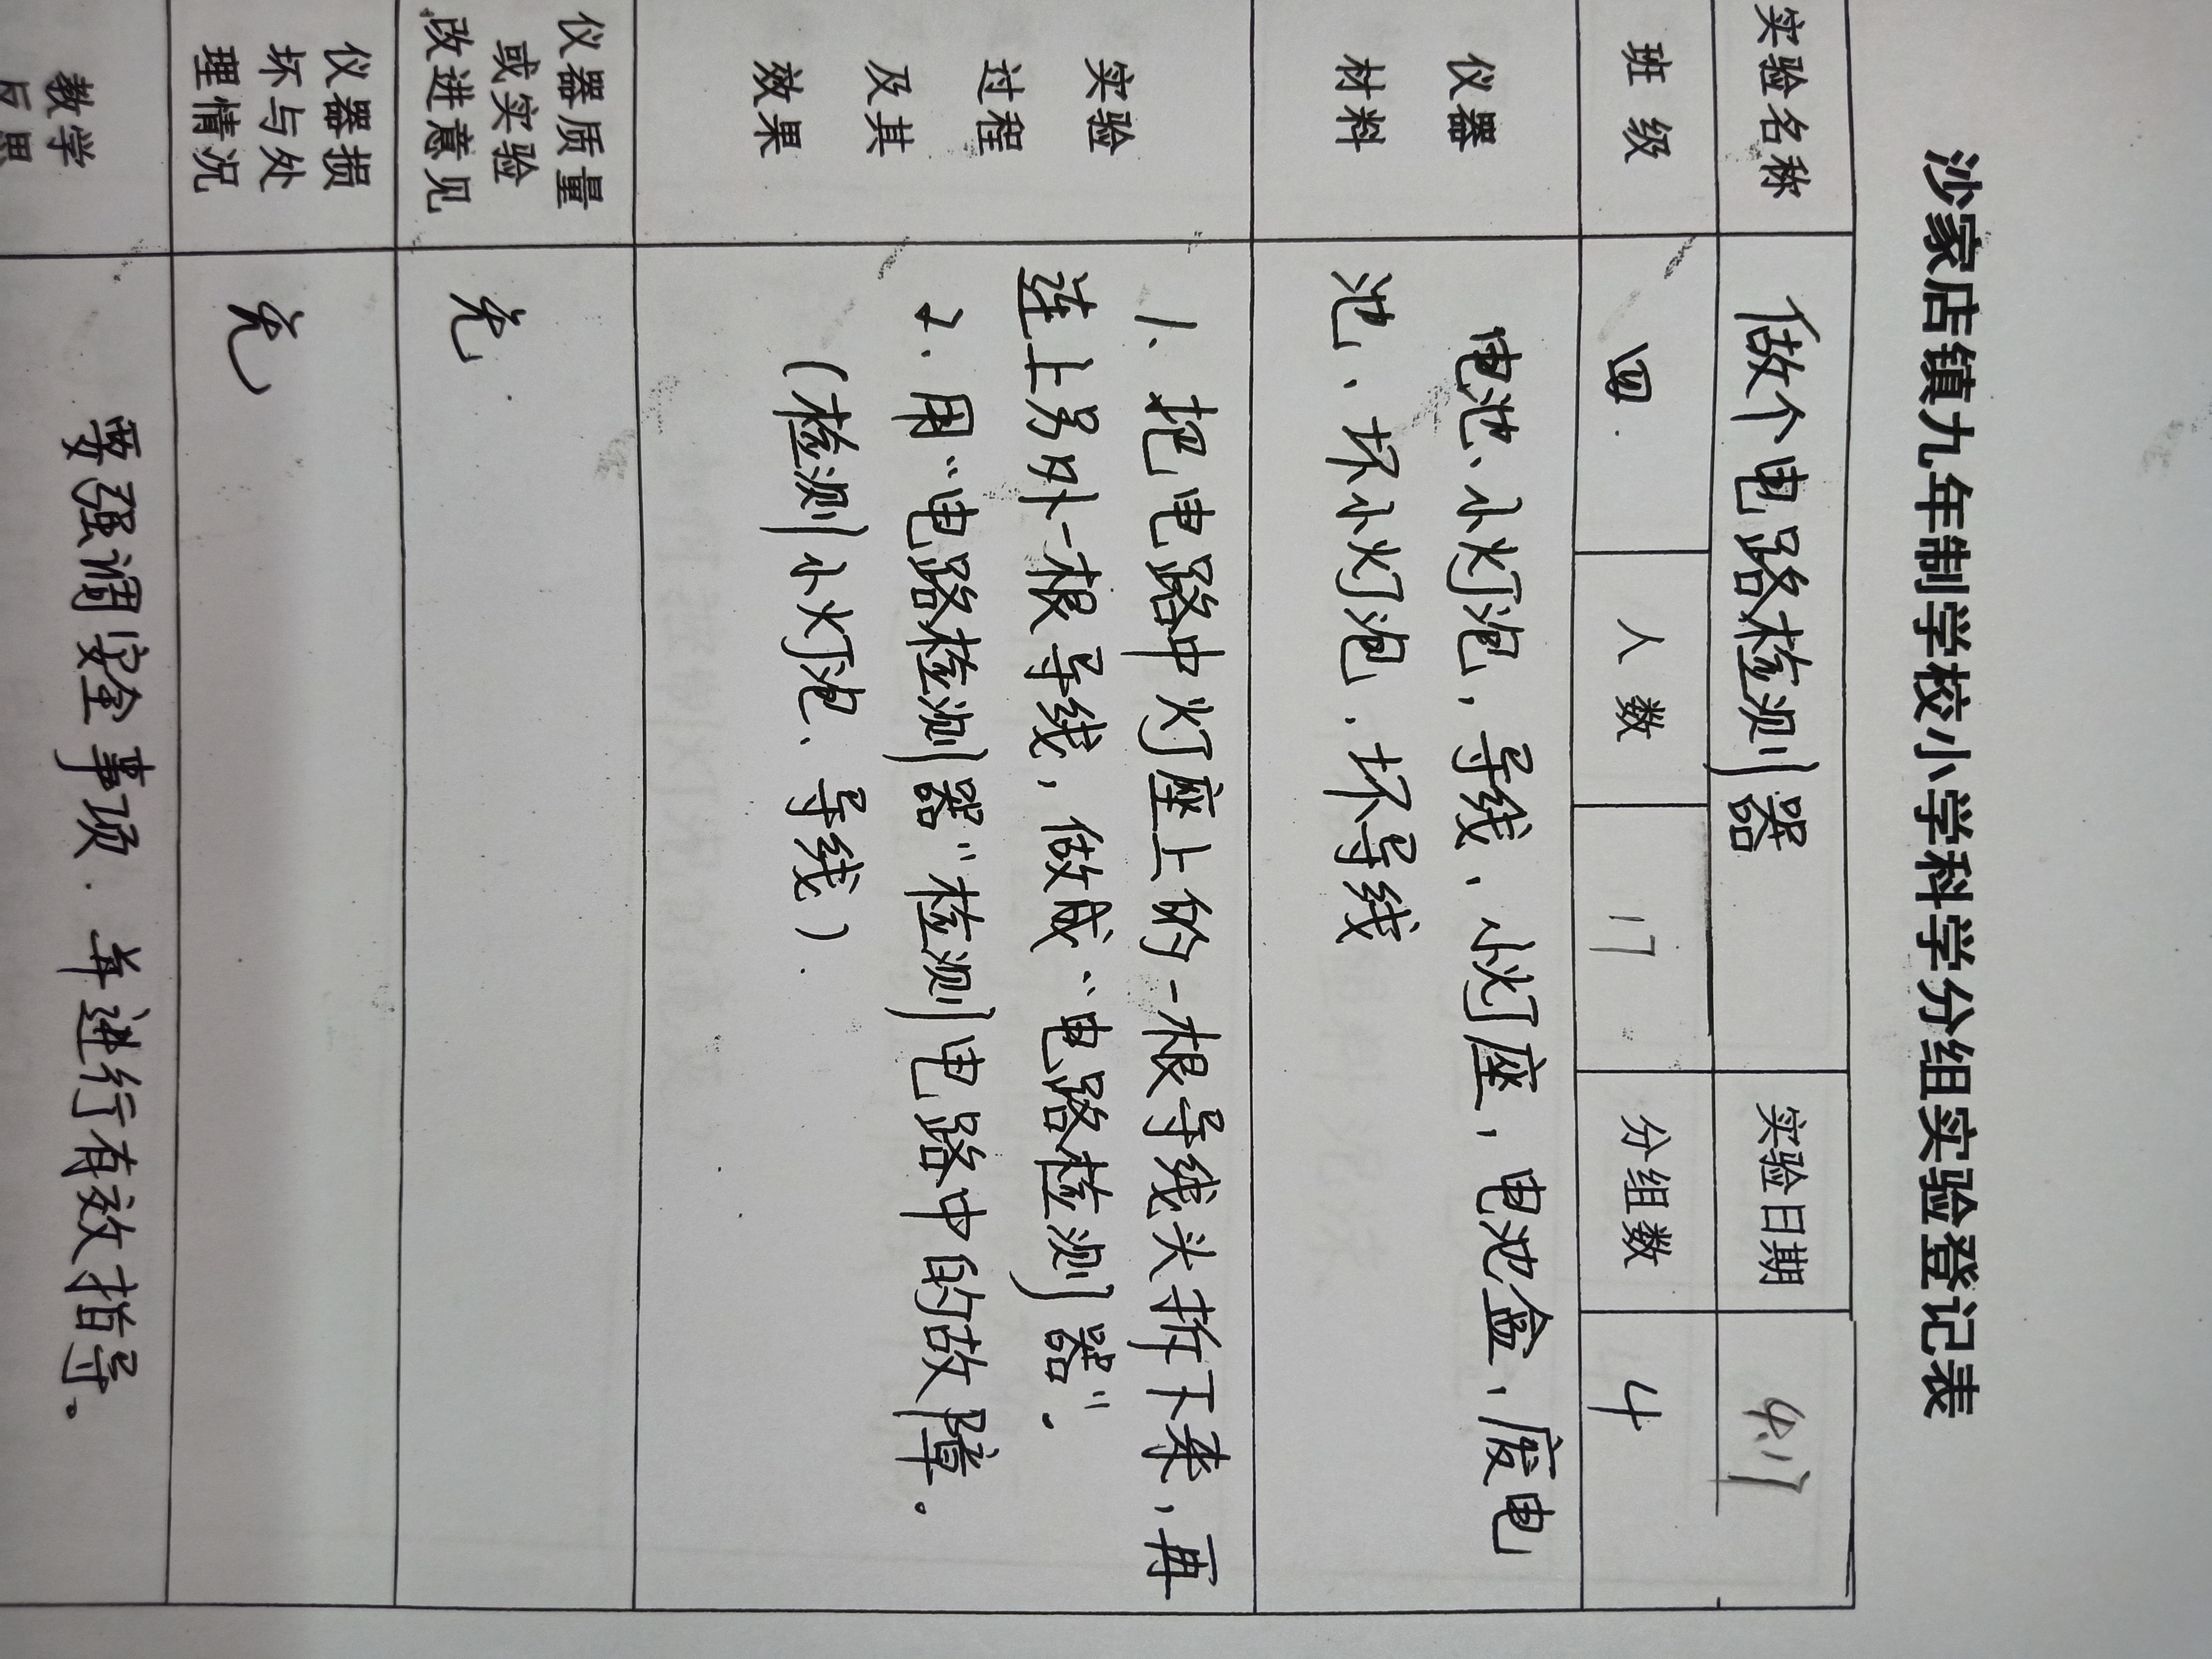 沙家店镇九年制学校小学科学分组实验登记表
实验名称 做个电路检测器 实验日期 4.17
班级 四. 人数 17 分组数 4
仪器 电池、小灯泡,导线、小灯座,电池盒,废电
材料 池、坏小灯泡.坏导线
实验 1、把电路中灯座上的一根导线头拆下来,再
过程 连上另外一根导线,做成“电路检测器”.
及其 2、用“电路检测器”检测电路中的故障。
效果 (检测小灯泡、导线).
仪器质量
或实验 无.
改进意见
仪器损
坏与处 无
理情况
教学 要强调安全事项.并进行有效指导。
反思